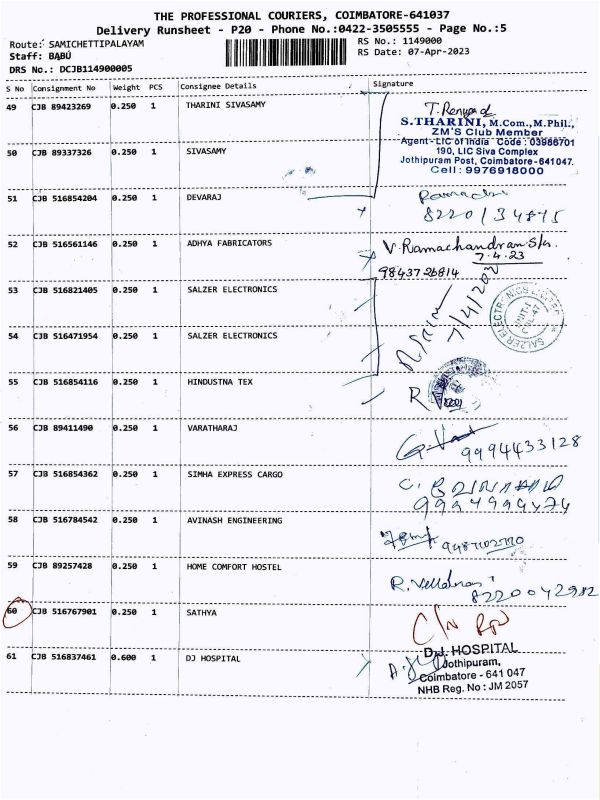 THE PROFESSIONAL COURIERS, COIMBATORE-641037
Delivery Runsheet - P20 - Phone No.:0422-3505555 - Page No.:5
Route: SAMICHETTIPALAYAM
RS No.: 1149000
Staff: BABU
RS Date: 07-Apr-2023
DRS No.: DCJB114900005
S No Consignment No Weight PCS Consignee Details Signature
49 CJB 89423269 0.250 1 THARINI SIVASAMY
S.THARINI, M.Com.,M.Phil.,
ZM'S Club Member
Agent - LIC of India Code : 03986701
190, LIC Siva Complex
Jothipuram Post, Coimbatore -641047.
Cell : 9976918000
50 CJB 89337326 0.250 1 SIVASAMY
51 CJB 516854204 0.250 1 DEVARAJ
52 CJB 516561146 0.250 1 ADHYA FABRICATORS V. Ramachandran
7.4.23
9843726814
53 CJB 516821405 0.250 1 SALZER ELECTRONICS
7/4/202
SALZER ELECTRONICS LIMITED
UNIT-1
54 CJB 516471954 0.250 1 SALZER ELECTRONICS
55 CJB 516854116 0.250 1 HINDUSTNA TEX
56 CJB 89411490 0.250 1 VARATHARAJ
9994433128
57 CJB 516854362 0.250 1 SIMHA EXPRESS CARGO
58 CJB 516784542 0.250 1 AVINASH ENGINEERING
59 CJB 89257428 0.250 1 HOME COMFORT HOSTEL
8220042982
60 CJB 516767901 0.250 1 SATHYA
61 CJB 516837461 0.600 1 DJ HOSPITAL
D.J. HOSPITAL
Jothipuram,
Coimbatore - 641 047
NHB Reg. No : JM 2057